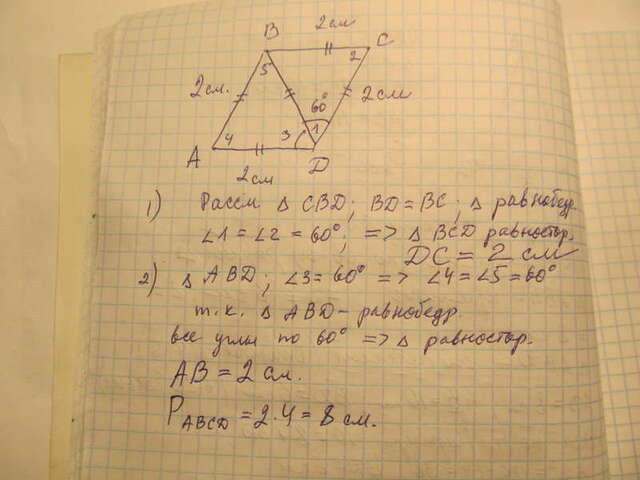 2 см
B
C
5
2
2 см.
60°
2 см
1
4
3
A
D
2 см
1) Рассм △ CBD; BD = BC; △ равнобедр.
∠1 = ∠2 = 60°; => △ BCD равностор.
DC = 2 см
2) △ ABD; ∠3 = 60° => ∠4 = ∠5 = 60°
т.к. △ ABD – равнобедр.
все углы по 60° => △ равностор.
AB = 2 см.
P ABCD = 2·4 = 8 см.